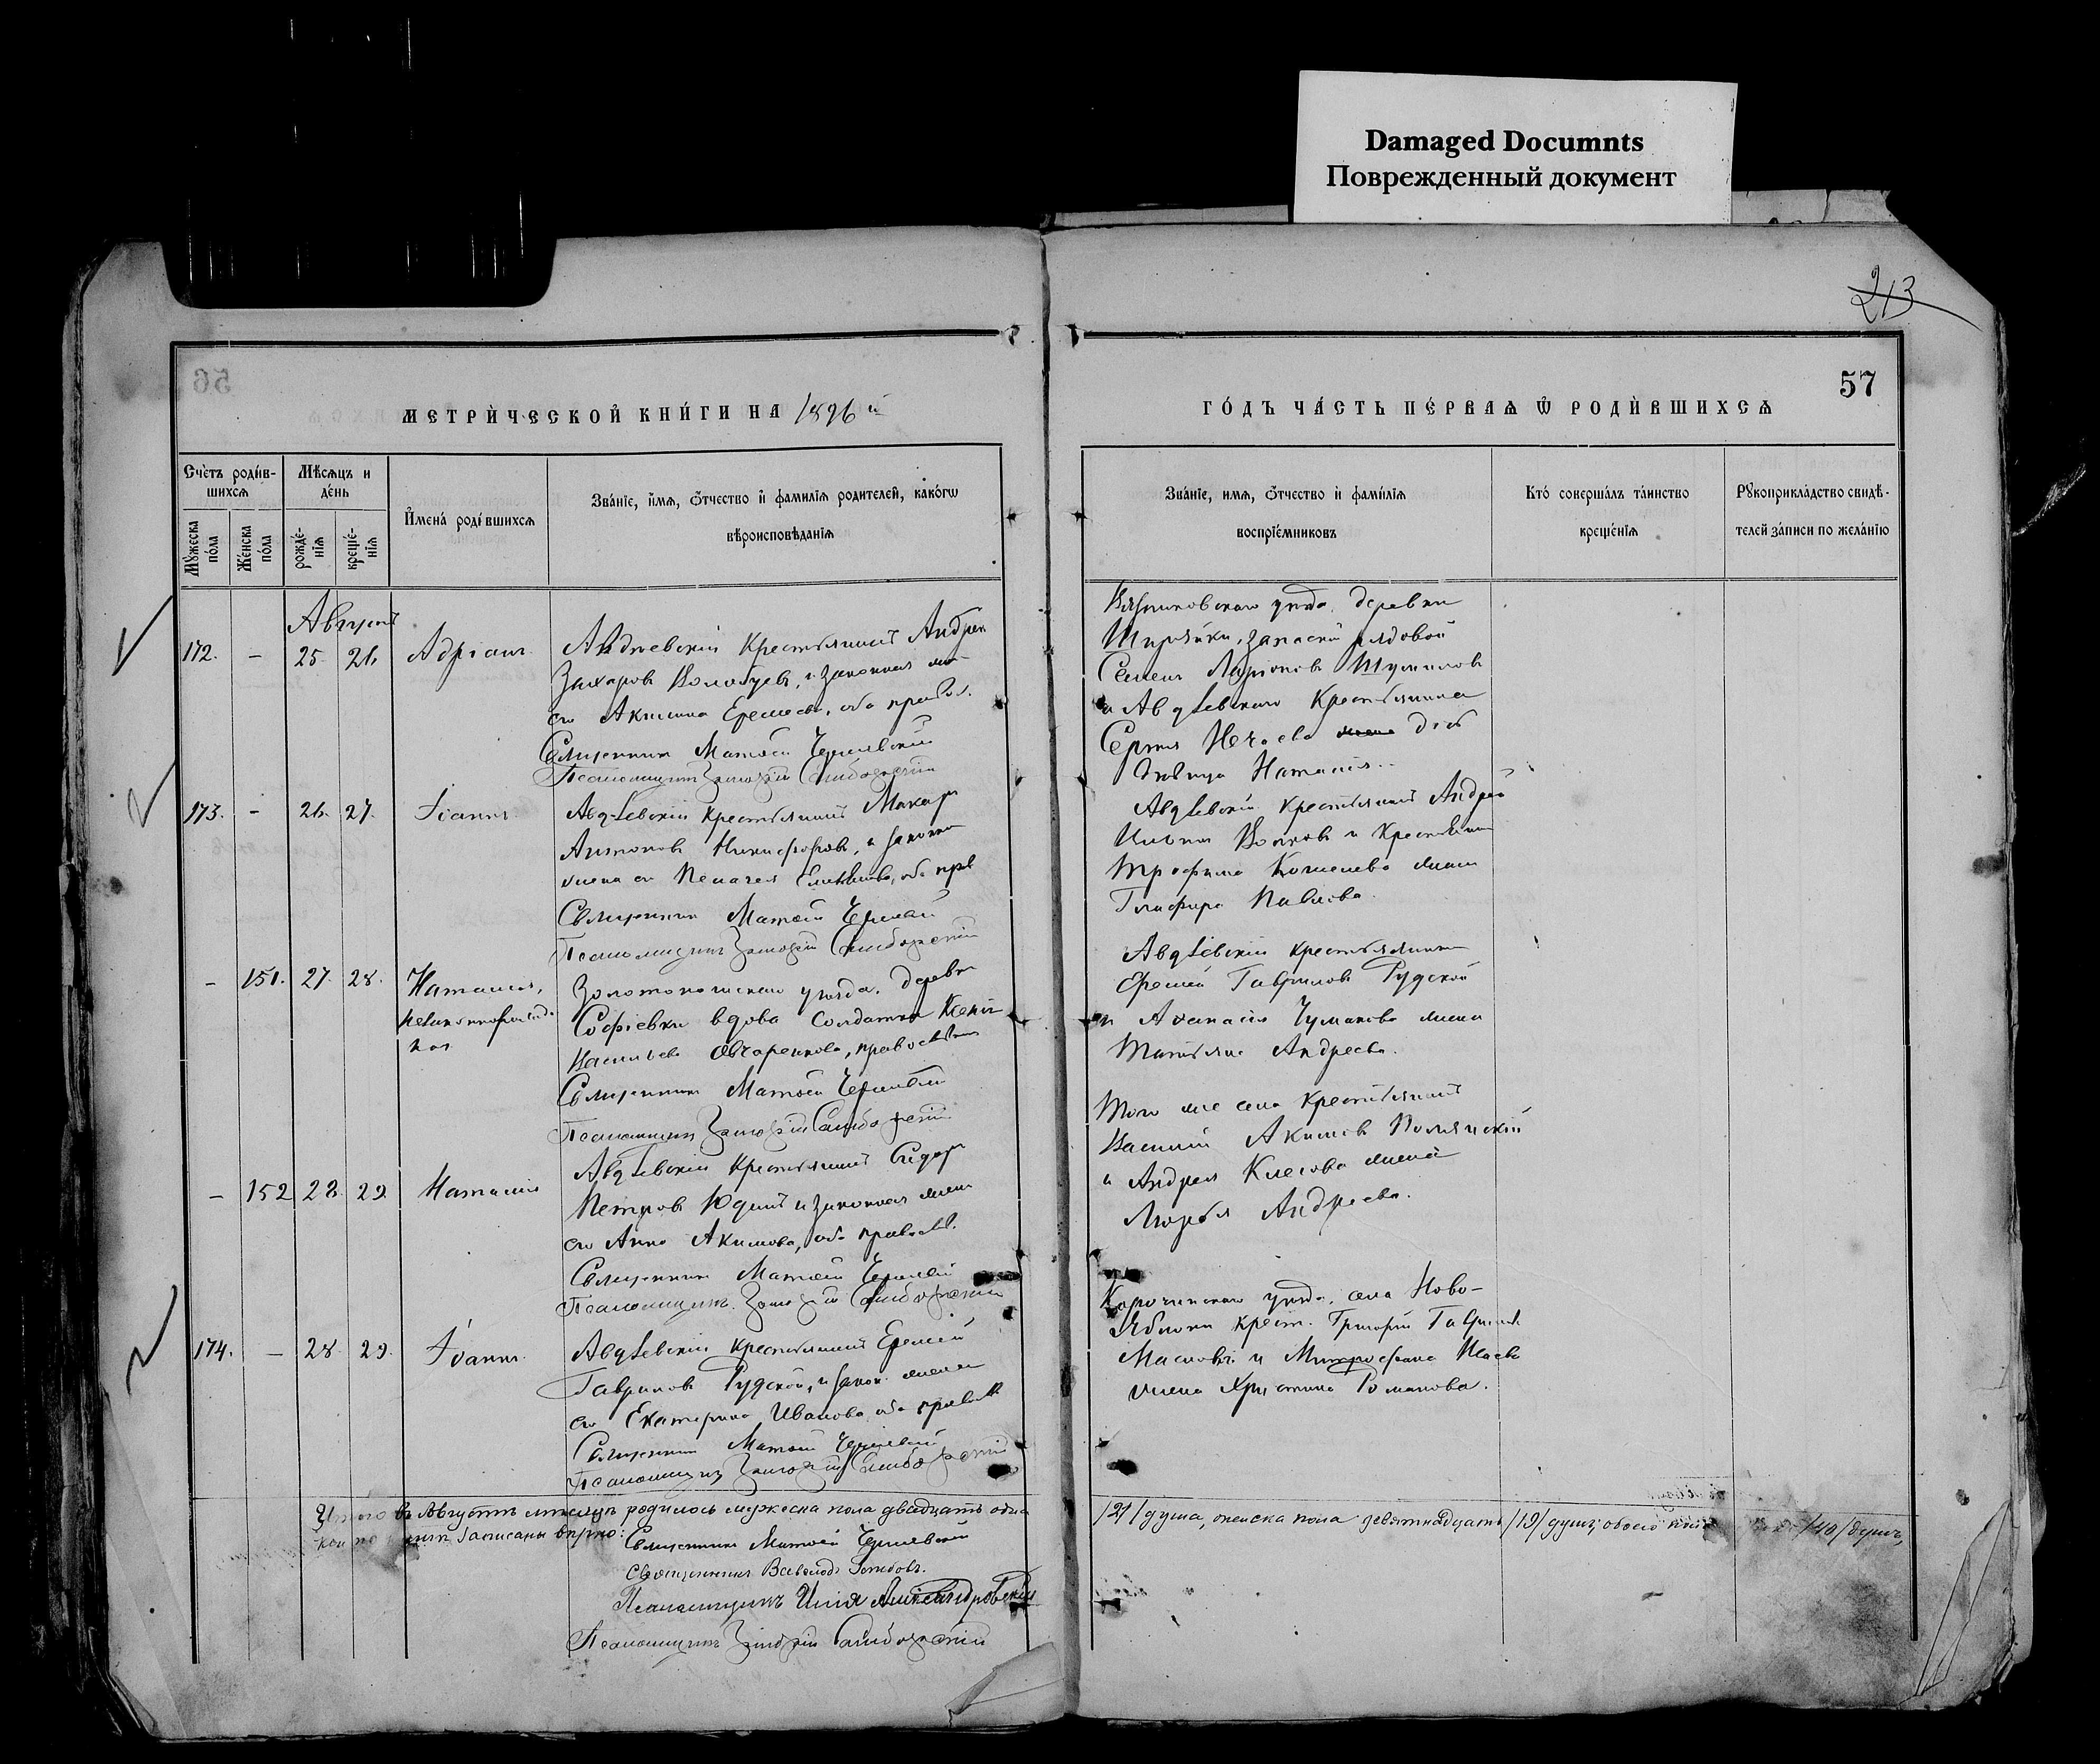 Damaged Documnts
Поврежденный документ
213
56
57
МЕТРИ́ЧЕСКОЙ КНИ́ГИ НА 1896 й
ГО́ДЪ ЧА́СТЬ ПЕ́РВАѦ Ѿ РОДИ́ВШИХСѦ
Счетъ роди́в-
шихсѧ
Мѣсѧцъ и
де́нь
Мꙋжеска по́ла
Же́нска по́ла
рожде́-
нїѧ
креще́-
нїѧ
И҆мена́ роди́вшихсѧ
Зва́нїе, и҆́мѧ, ѻ҆́тчество и҆ фами́лїѧ родителей, како́гѡ
вѣроисповѣданїѧ
Зва́нїе, имѧ, ѻ҆́тчество и҆ фами́лїѧ
воспрїе́мниковъ
Кто́ соверша́лъ та́инство
креще́нїѧ
Рꙋкоприкла́дство свидѣ́-
телей за́писи по жела́нїю
Августъ
172. – 25. 26. Адріанъ.
Авдѣевскій крестьянинъ Андрей
Захаровъ, и законная
его Акилина Ереміева, оба правос.
Священникъ Матѳей
Псаломщикъ
уѣзда, деревни
запасный рядовой
Семенъ Ларіоновъ
и Авдѣевскаго крестьянина
Сергія Нечаева дочь
дѣвица Наталія.
173. – 26. 27. Іоаннъ.
Авдѣевскій крестьянинъ Макаръ
Антоновъ Никифоровъ, и законна
жена его Пелагея оба прв
Священникъ Матѳей
Псаломщикъ
Авдѣевскій крестьянинъ Андрей
Волковъ и крестьянина
Трофима Кошелева жена
Глафира Павлова.
– 151. 27. 28. Наталія,
незаконнорожден
ная
Золотоношскаго уѣзда, деревни
Софіевки вдова солдатка Ксенія
Васильева Овчаренкова, православн
Священникъ Матѳей
Псаломщикъ
Авдѣевскій крестьянинъ
Еремей Гавриловъ Рудской
и Аѳанасія Чумакова жена
Татьяна Андреева.
– 152 28. 29. Наталія
Авдѣевскій крестьянинъ Сидоръ
Петровъ Юдинъ и законная жена
его Анна Акимова, оба правосл.
Священникъ Матѳей
Псаломщикъ
Того же села крестьянинъ
Василій Акимовъ Полянскій
и Андрея жена
Любовь Андреева.
174. – 28. 29. Іоаннъ.
Авдѣевскій крестьянинъ Еремей
Гавриловъ Рудской, и закон. жена
его Екатерина Иванова, оба правосл
Священникъ Матѳей
Псаломщикъ
Корочанскаго уѣзда, села Ново-
Яблони крест. Григорій Гаврилов
Масловъ и Митрофана Исаева
жена Христина Романова.
Итого въ Августѣ мѣсяцѣ родилось мужеска пола двадцать одна /21/ душа, женска пола девятнадцать /19/ душъ, обоего пола /40/ душъ,
записаны вѣрно:
Священникъ Матѳей
Священникъ Всеволодъ
Псаломщикъ Илія Александровскій
Псаломщикъ